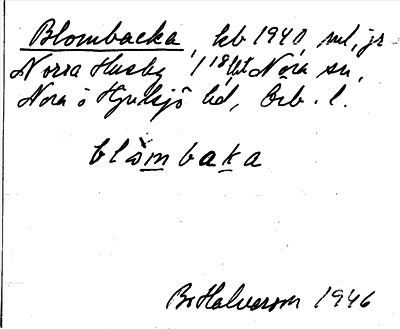 Blombacka, kb 1940, ml, jr
Norra Husby 1 18/ Nora sn,
Nora o Hjulsjö bd, Örb. l.
blòmbaka
Br Halvarson 1946